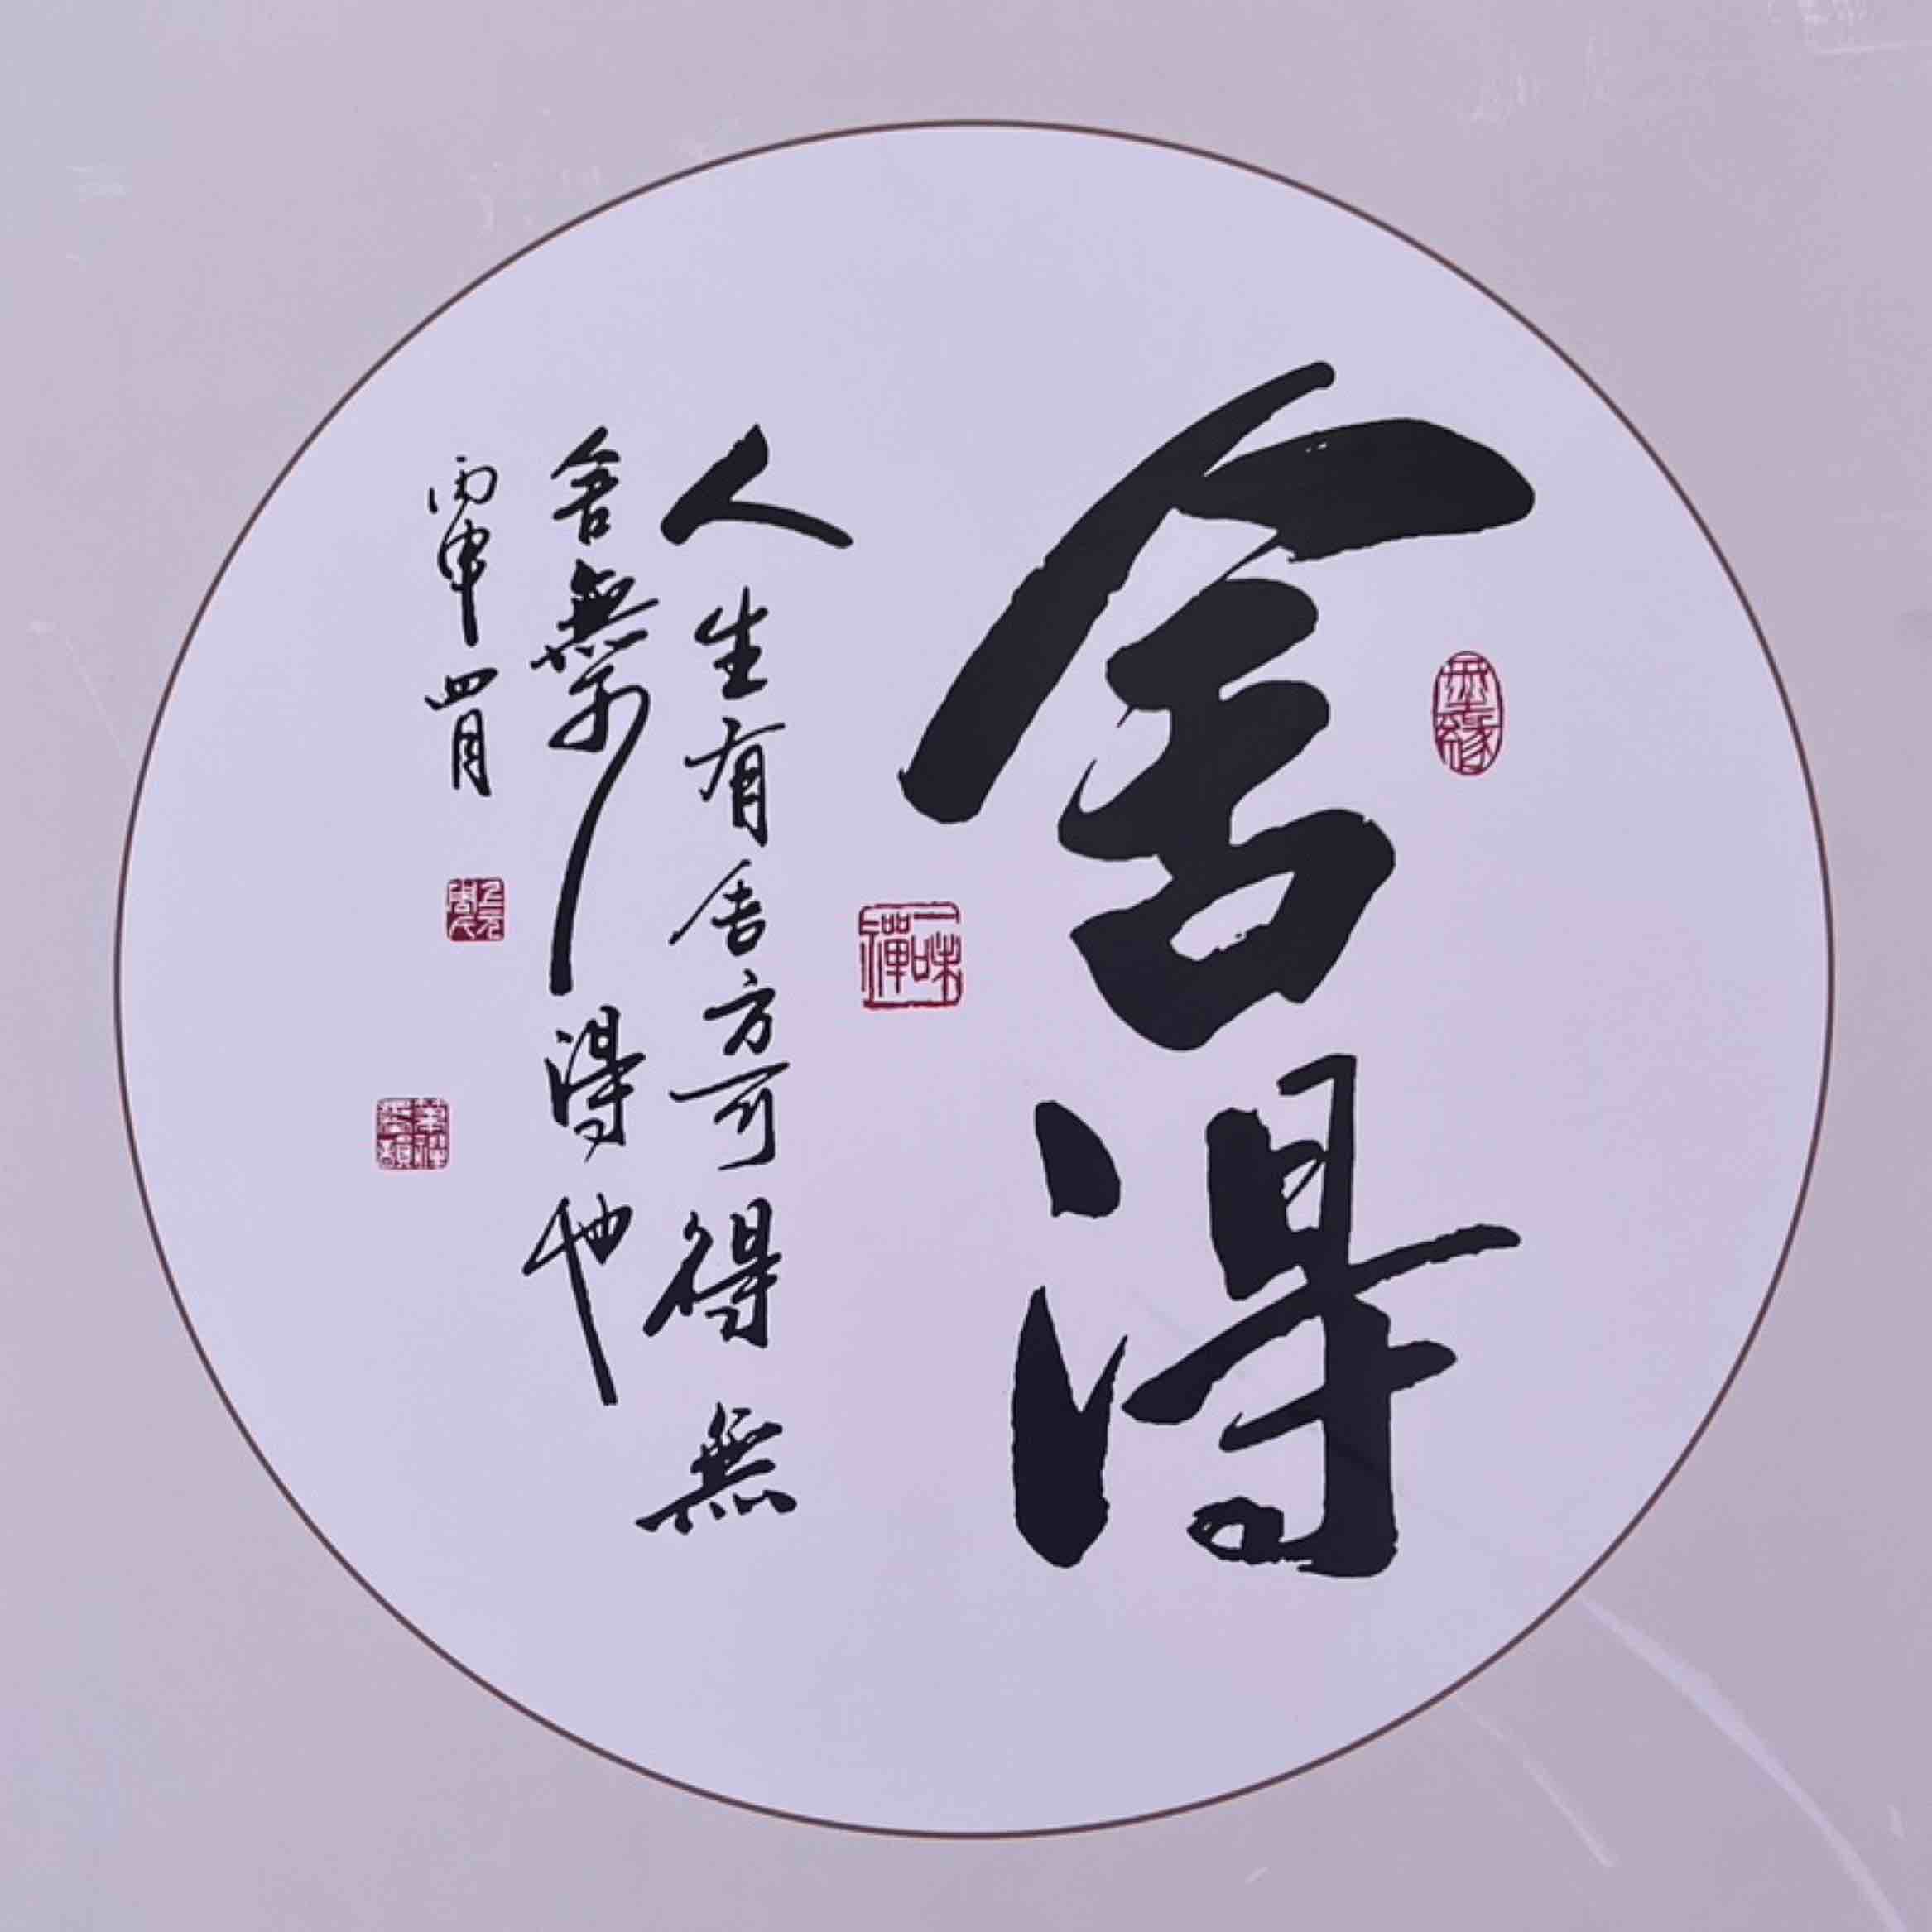 舍得
無緣
一味禪
人生有舍方可得無
舍無所得也
丙申四月